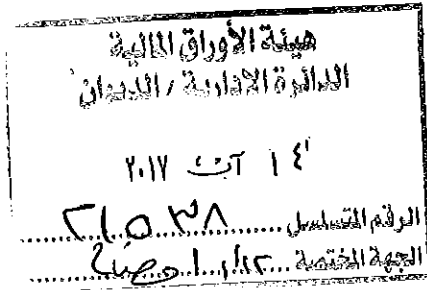 هيئة الأوراق المالية
الدائرة الادارية / الديوان
١٤ آب ٢٠١٧
الرقم المتسلسل ٢١٥٣٨
الجهة المختصة